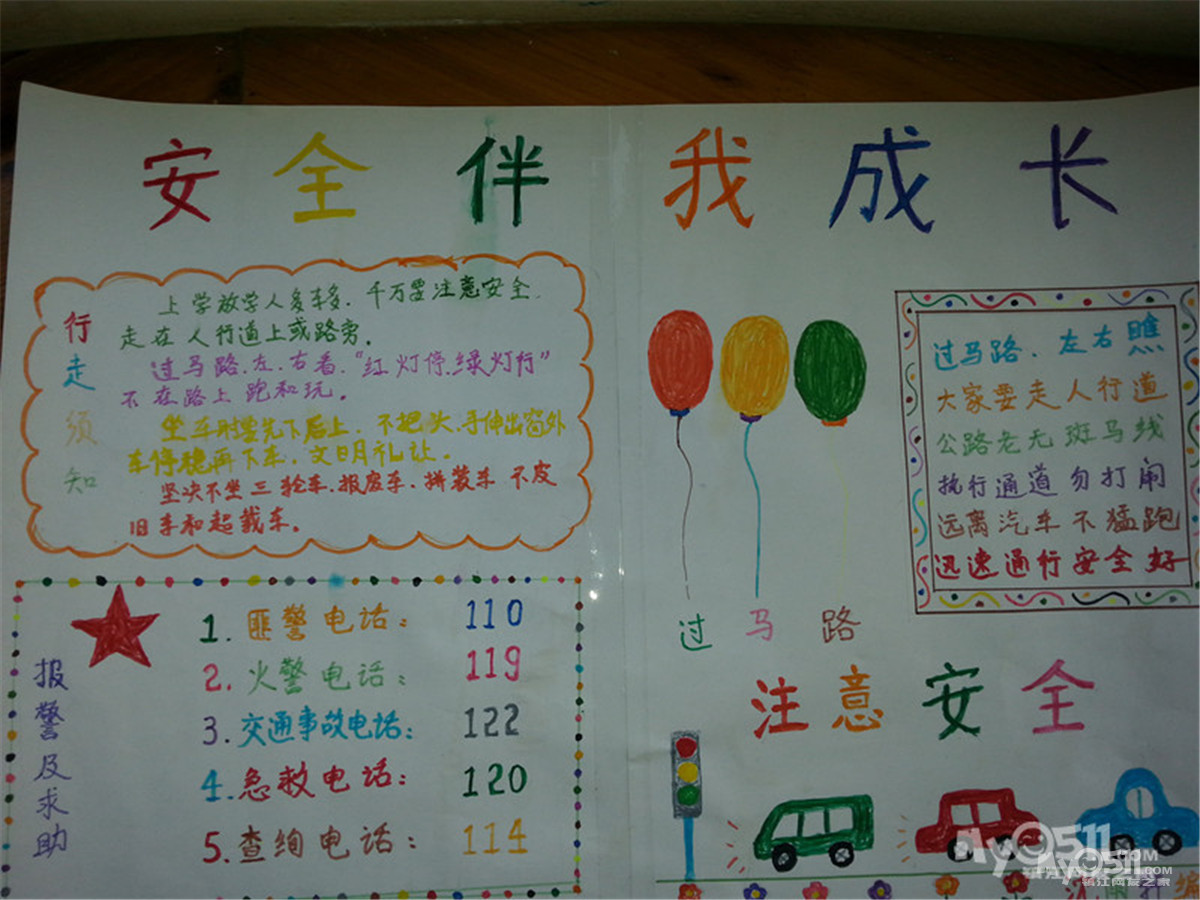 安全伴我成长
行走须知
上学放学人多车多.千万要注意安全.
走在人行道上或路旁。
过马路.左.右看."红灯停.绿灯行"
不在路上跑和玩。
坐车时要先下后上.不把头.手伸出窗外
车停稳再下车.文明礼让.
坚决不坐三轮车.报废车.拼装车
旧车和超载车。
报警及求助
1.匪警电话：110
2.火警电话：119
3.交通事故电话：122
4.急救电话：120
5.查绚电话：114
过马路
注意安全
过马路.左右瞧
大家要走人行道
公路老无斑马线
执行通道勿打闹
远离汽车不猛跑
迅速通行安全好
My0511.COM
镇江网友之家